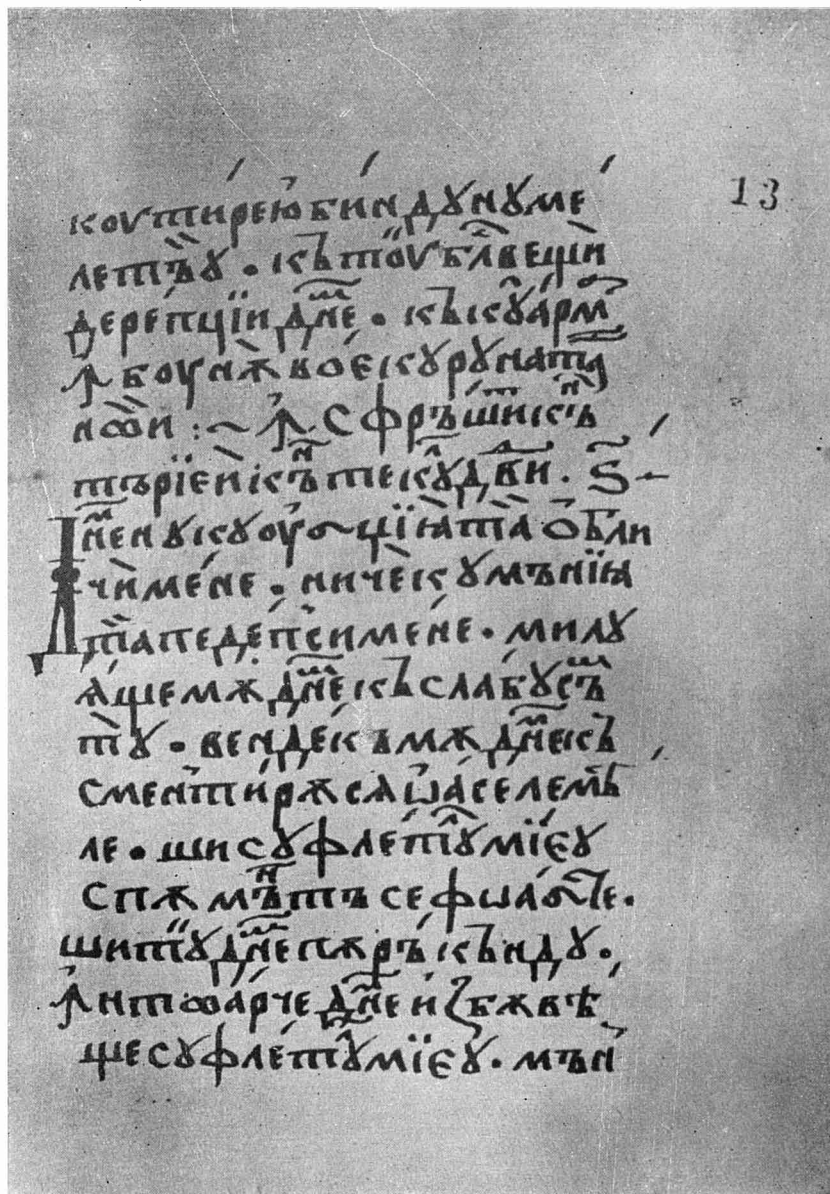 коутирею бинду нумє
летъꙋ · къ тоу бл҃вещи
дерепции дм҃не · къ кꙋ арм
ꙟ боунѫ воѥ кꙋрꙋната
нѡи :~ ꙟ сфръшикъ
търїеи къ те кꙋ дв҃и · ѕ
Дм҃не нꙋ кꙋ оурцїѧ та ѻбли
чи мене · ниче кꙋ мънїѧ
та педепси мене · милꙋ
ѧще мѫ дм҃не къ слабꙋ съ
тꙋ · вендекъ мѫ дм҃не къ
сментирѫсѧ ѡаселе мѣ
ле · ши сꙋфлетꙋ мїеꙋ
спѫмътъ се фѡарте ·
ши тꙋ дм҃не пѫръ къндꙋ ·
ꙟнтѡарче дм҃не избѫвѣ
ще сꙋфлетꙋ мїеꙋ · мън